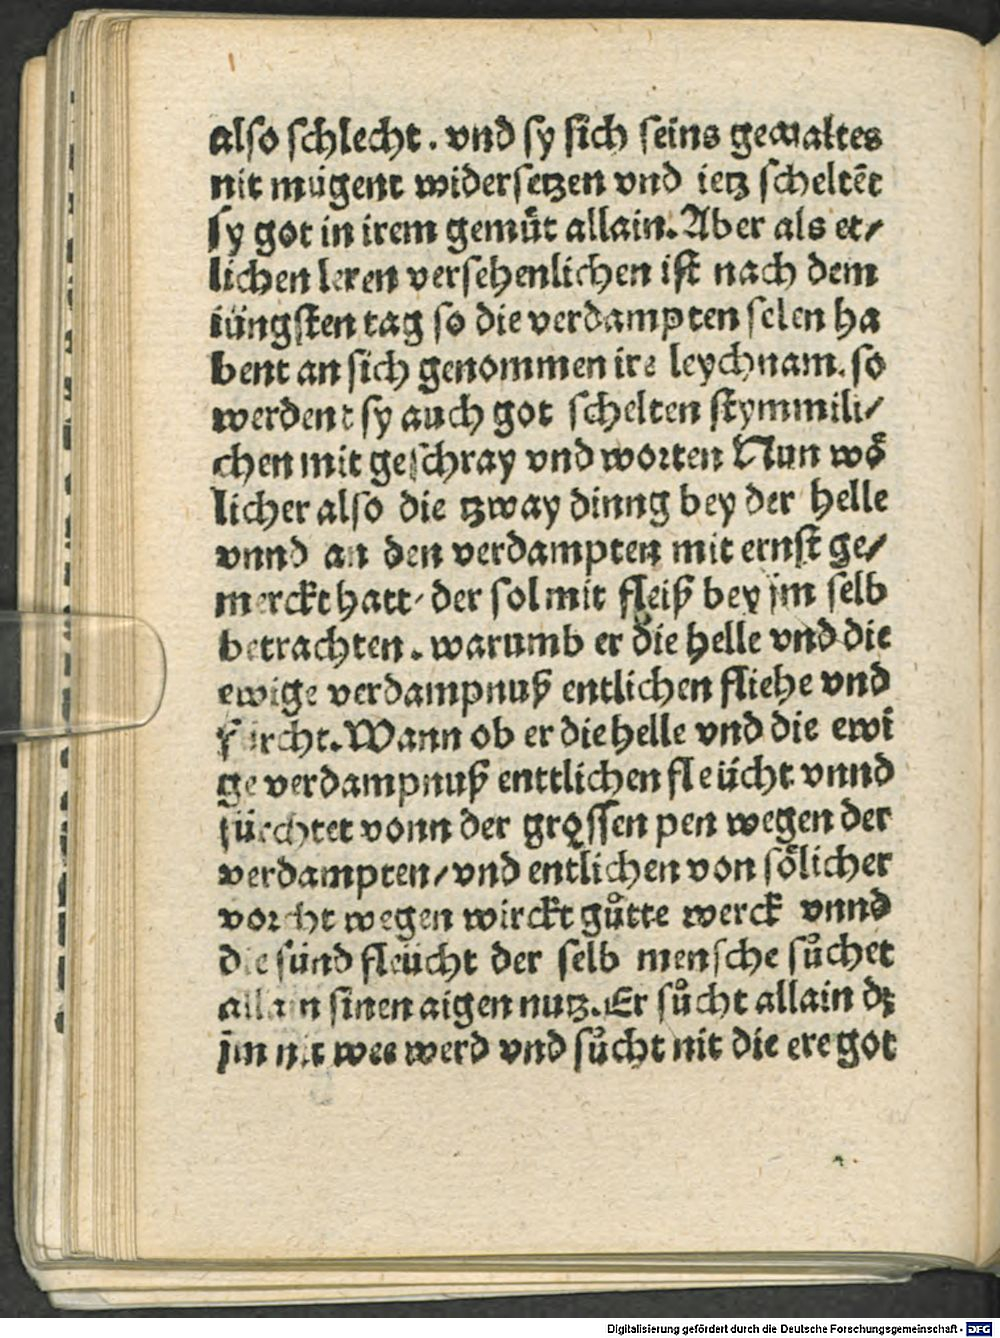 also schlecht. vnd sy sich seins gewaltes
nit mügent widersetzen vnd ietz scheltēt
sy got in irem gemüt allain. Aber als et/
lichen leren versehenlichen ist nach dem
iüngsten tag so die verdampten selen ha
bent an sich genommen ire leychnam. so
werdent sy auch got schelten stymmili/
chen mit geschray vnd worten Nun wö
licher also die tzway dinng bey der helle
vnnd an den verdampten mit ernst ge/
merckt hatt/ der sol mit fleiß bey jm selb
betrachten. warumb er die helle vnd die
ewige verdampnuß entlichen fliehe vnd
fürcht. Wann ob er die helle vnd die ewi
ge verdampnuß enttlichen fleücht vnnd
fürchtet vonn der grossen pen wegen der
verdampten/ vnd entlichen von sölicher
vorcht wegen wirckt gůtte werck vnnd
die sünd fleücht der selb mensche sůchet
allain sinen aigen nutz. Er sůcht allain dz
jm nit wee werd vnd sůcht nit die ere got
Digitalisierung gefördert durch die Deutsche Forschungsgemeinschaft - DFG